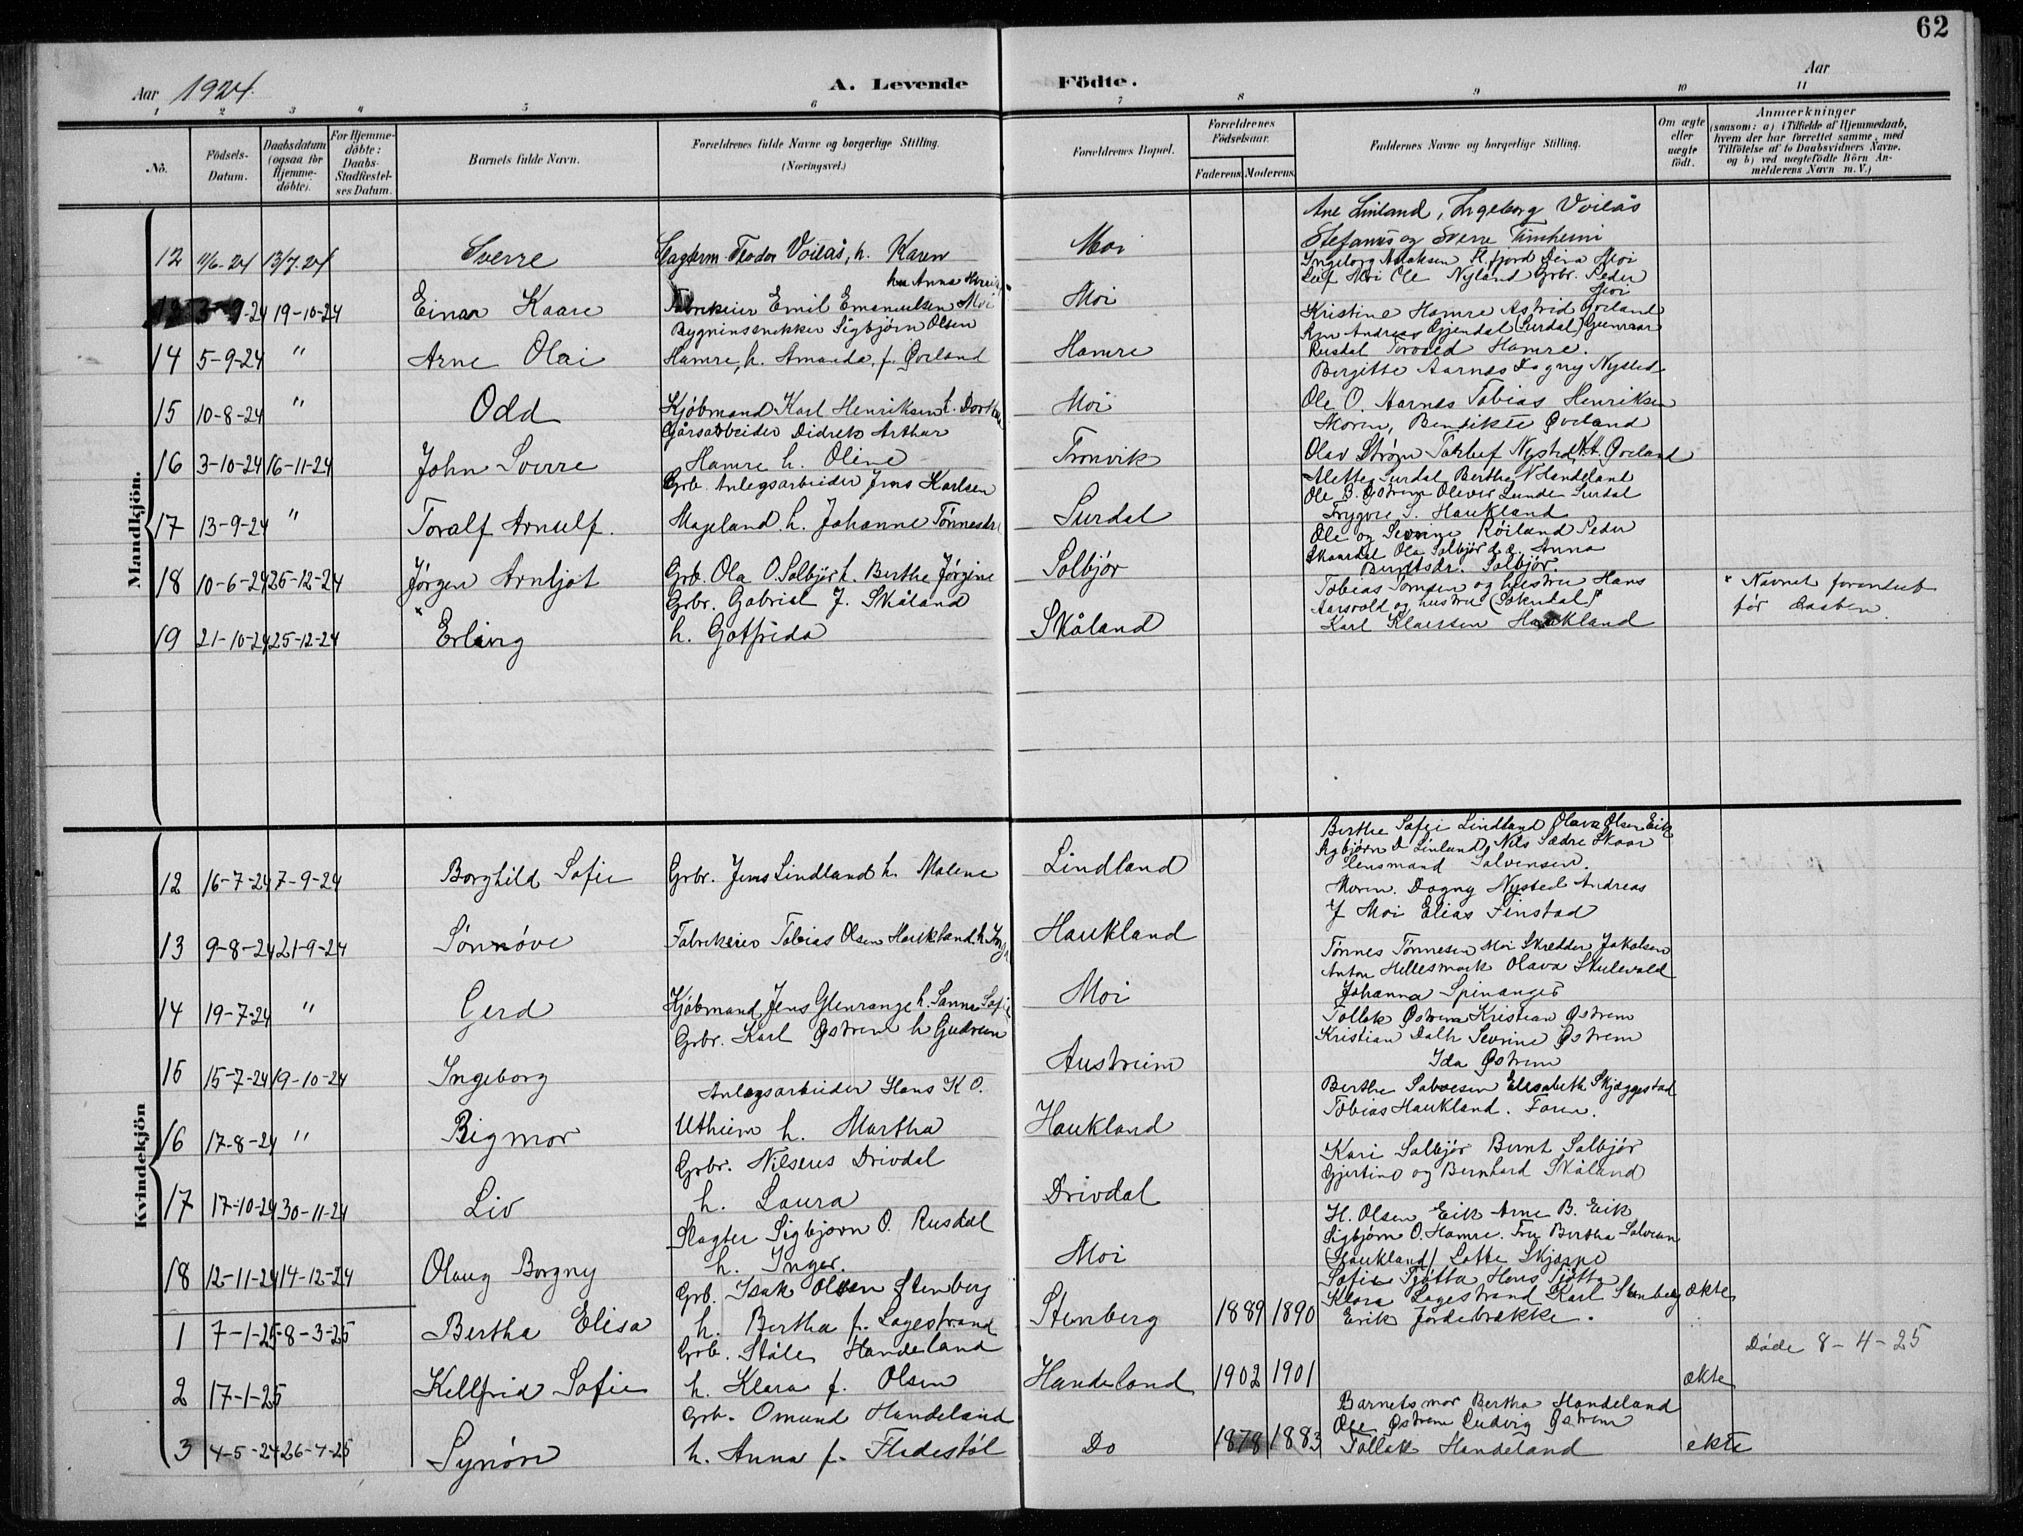 62
Aar 1924.
A. Levende Födte.
Aar
1 2 3 4 5 6 7 8 9 10 11
No.
Födsels-Datum.
Daabsdatum (ogsaa for Hjemmedöbte).
For Hjemmedöbte: Daabs-Stadfæstelses Datum.
Barnets fulde Navn.
Forældrenes fulde Navne og borgerlige Stilling.
(Næringsvei.)
Forældrenes Bopæl.
Forældrenes Födselsaar.
Faderens. Moderens.
Faddernes Navne og borgerlige Stilling.
Om ægte eller uægte födt.
Anmærkninger
(saasom: a) i Tilfælde af Hjemmedaab, hvem der har forrettet samme, med Tilföielse af to Daabsvidners Navne, og b) ved uægtefödte Börn Anmelderens Navn m. V.)
Mandkjön.
Ane Linland, Ingeborg Voilås
12 11/6.24 13/7.24 Sverre Theodor Voilås, h. Karen Moi Stefanus og Sverre
Ingeborg Moi
Leif Moi Ole Nyland Grbr. Peder
Moi
9-24 19-10-24 Einar Kaare Emil Emanuelsen Moi Moi Kristine Hamre Astrid Øveland
Sigbjørn Olsen Andreas Gjendal (Surdal) Gunnar
14 5-9-24 " Arne Olai Hamre, h. Amanda f. Øveland Hamre Rusdal Hamre.
Bergitte Aarnes Dagny Nysted
15 10-8-24 " Odd Kjöbmand Karl Henriksen h. Dorthea Moi Ole O. Aarnes Tobias Henriksen
Gårsarbeider Didrek Arthur Moren, Bendikte Øveland
16 3-10-24 16-11-24 John Sverre Hamre h. Oline Tronvik Olav Strøm Nysted, Øveland
Grb. Anlegsarbeider Jens Karlsen Alette Surdal Berthe N Handeland
Ole B. Østrem Oliver Lunde Surdal
17 13-9-24 " Toralf Arnulf. Mageland h. Johanne Tønnesdr Surdal Trygve S. Haukland
Ole og Sevrine Röiland Peder
Ola Solbjør Anna
18 10-6-24 26-12-24 Jørgen Arnljot Grb. Ola O. Solbjør h. Berthe Jørgine Solbjør Solbjør.
Grbr. Gabriel J. Skåland Tobias og hustru Hans * Navnet forandret
Aarsvold og hustru (Sokndal) før daaben
19 21-10-24 25-12-24 * Erling h. Gotfrida Skåland Karl Haukland
Kvindekjön
Berthe Sofie Lindland Olava Olsen Eik
Sigbjørn Linland Nils Sædre Skaar
12 16-7-24 7-9-24 Borghild Sofie Grbr. Jens Lindland h. Malene Lindland Lensmand Salvensen.
Moren. Dagny Nysted Andreas
J Moi Elias Finstad
13 9-8-24 21-9-24 Sønnøve Tobias Olsen Haukland h. Haukland
Tønnes Tønnesen Moi Skredder Jakobsen
Anton Hellesmark Olava Skulevold
14 19-7-24 " Gerd Kjöbmand Jens Glenrange h. Sanna Sofie Moi Johanna Spinanger
Grbr. Karl Østrem h Gudrun Tollak Østrem Kristian Østrem
Kristian Dalh Sevrine Østrem
15 15-7-24 19-10-24 Ingeborg Austreim Ida Østrem
Anlegsarbeider Hans K O. Berthe Salvesen Elisabeth Skjæggestad
16 17-8-24 " Bigmor Utheim h. Martha Haukland Tobias Haukland. Faren.
Grbr. Nilseus Drivdal Kari Solbjør Bernt Solbjør
17 17-10-24 30-11-24 Liv h. Laura Drivdal Gjertine og Bernhard Skåland
Slagter Sigbjørn O. Rusdal H. Olsen Eik Arne B. Eik
Sigbjørn O. Hamre. Fru Bertha Salvesen
18 12-11-24 14-12-24 Olaug Borgny h. Inger. Moi (Haukland) Lotte Skjæppe
Grb. Isak Olsen Stenberg Sofie Tjötta Hans Tjötta
1 7-1-25 8-3-25 Bertha Elisa h. Bertha f. Lagestrand Stenberg 1889 1890 Klara Lagestrand Karl Stenberg Erik Jordebrække. ekte
Grb. Ståle Handeland Döde 8-4-25
2 17-1-25 Kellfrid Sofie h. Klara f. Olsen Handeland 1902 1901 ekte
Grb. Omund Handeland Barnets mor Bertha Handeland
Ole Østrem Ludvig Østrem
3 4-5-24 26-4-25 Synøve h. Anna f. Fledestøl Do 1878 1883 Tollak Handeland ekte